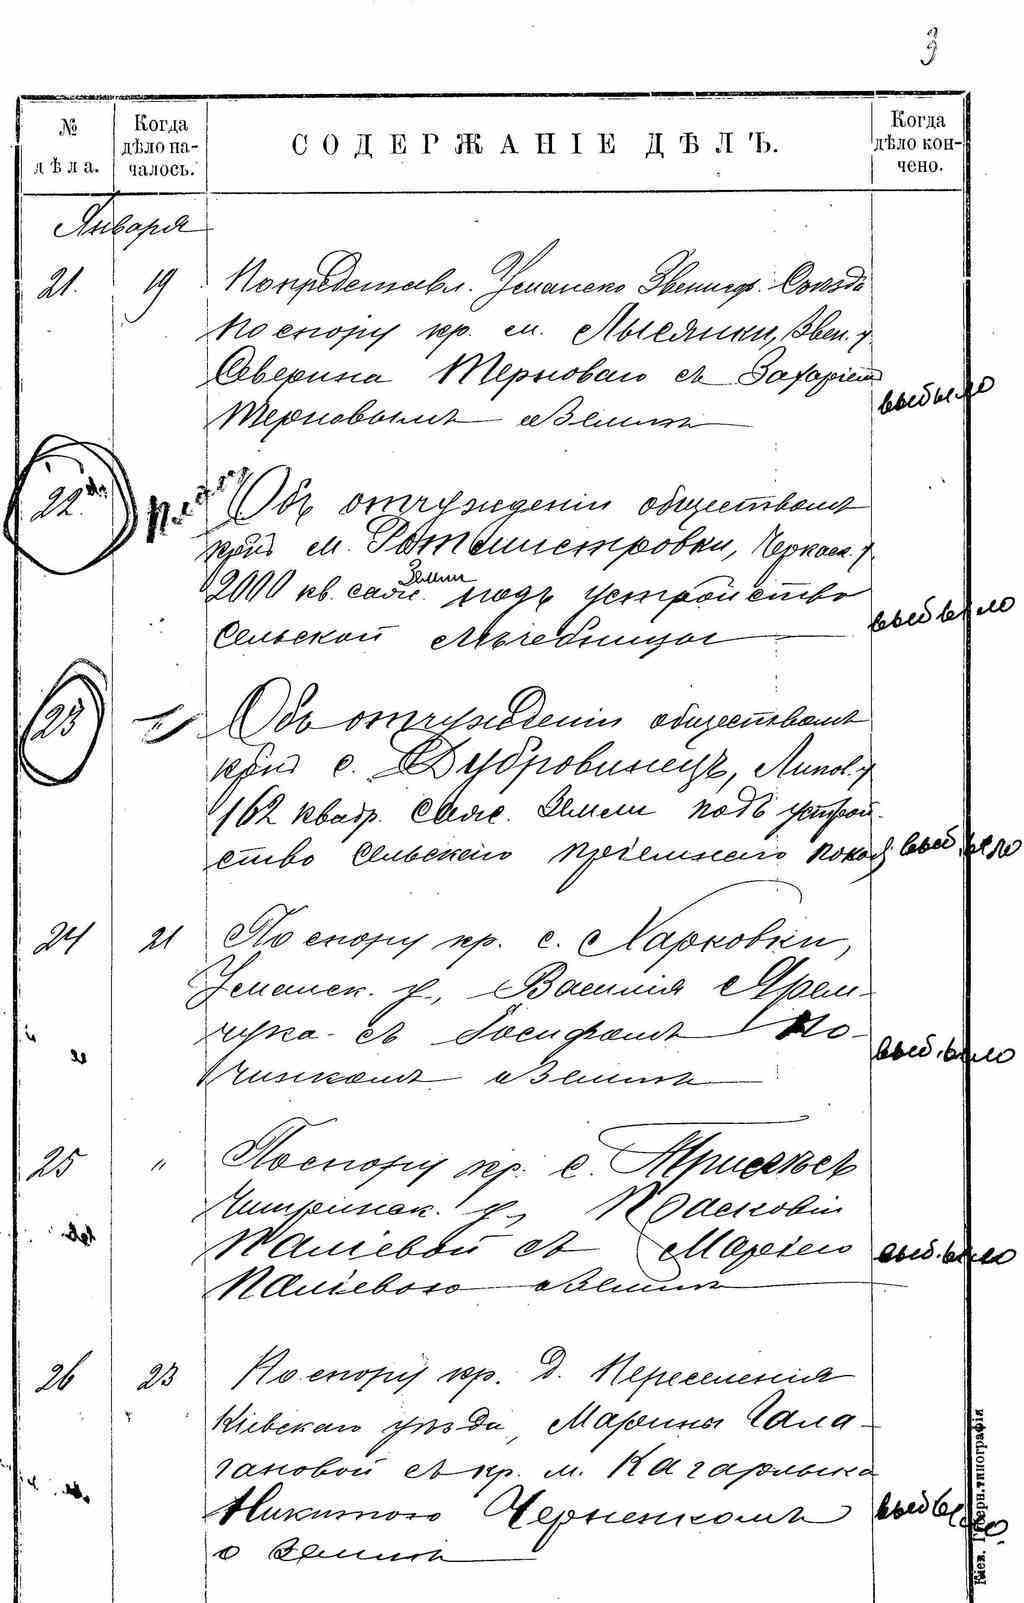 3
№ дѣла.
Когда дѣло началось.
СОДЕРЖАНІЕ ДѢЛЪ.
Когда дѣло кончено.
Января
21. 19 По представл. Уманско Звениг. Съѣзда
по спору кр. м. Лысянки, Звен. у.
Северина Терноваго съ Захаріемъ
Терновымъ о землѣ выбыло
22. Объ отчужденіи обществомъ
кр-нъ м. Ротмистровки, Черкас. у.
2000 кв. саж. земли подъ устройство
сельской лѣчебницы выбыло
23 " Объ отчужденіи обществомъ
кр-нъ с. Дубровинецъ, Липов. у
162 квадр. саж. земли подъ устрой-
ство сельскаго пріемнаго покоя выбыло
24 21 По спору кр. с. Харковки,
Уманск. у., Василія Ярем-
чука съ Іосифомъ По-
чинкомъ о землѣ выбыло
25 " По спору кр. с. Трилѣсъ
Чигринск. у., Прасковіи
Паліевой съ Маріею
Паліевою о землѣ выбыло
26 23 По спору кр. д. Переселенія
Кіевскаго уѣзда, Марины Гала-
гановой съ кр. м. Кагарлыка
Никитою Черненкомъ выбыло
о землѣ
Кіев. Губерн. типографія